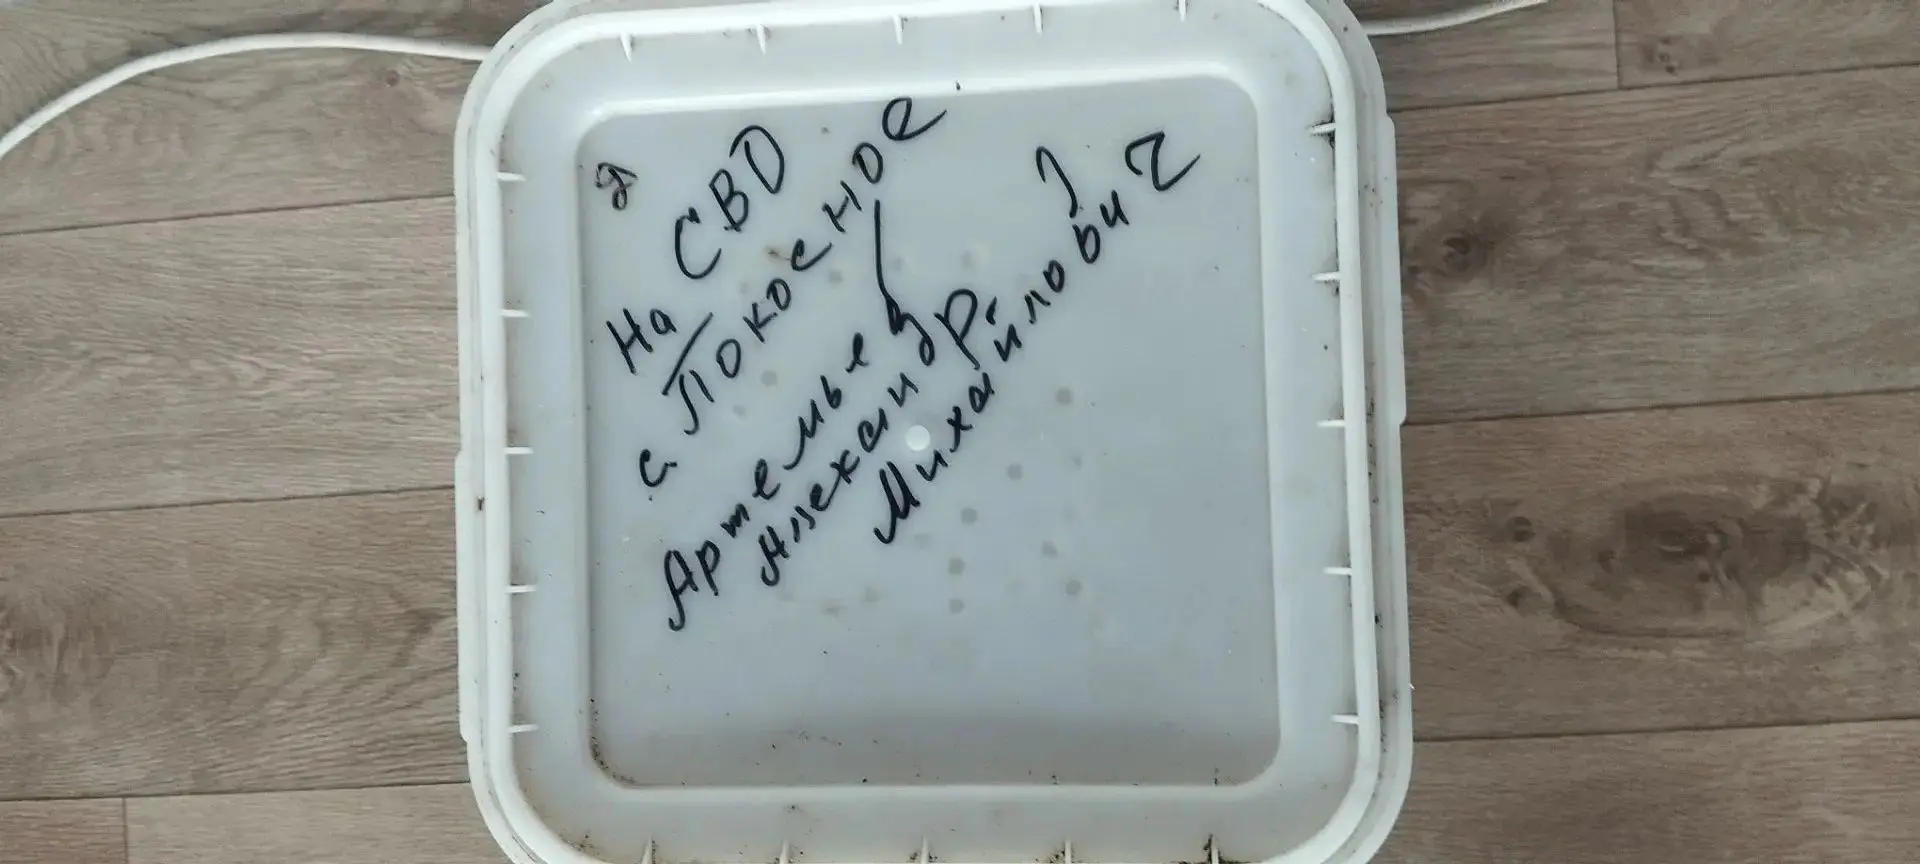 На СВО
с. Покосное
Артемьев
Александр
Михайлович